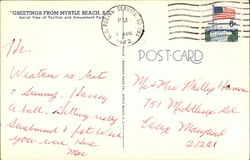 "GREETINGS FROM MYRTLE BEACH, S.C."
Aerial View of Pavilion and Amusement Park
PM
1972
6c
POST-CARD
Hi,
Weather is hot
& sunny. Having
a ball. Getting really
Sunburned & fat. Wish
you were Here
Mae
Mr & Mrs Phillip
751
Essex Maryland
21221